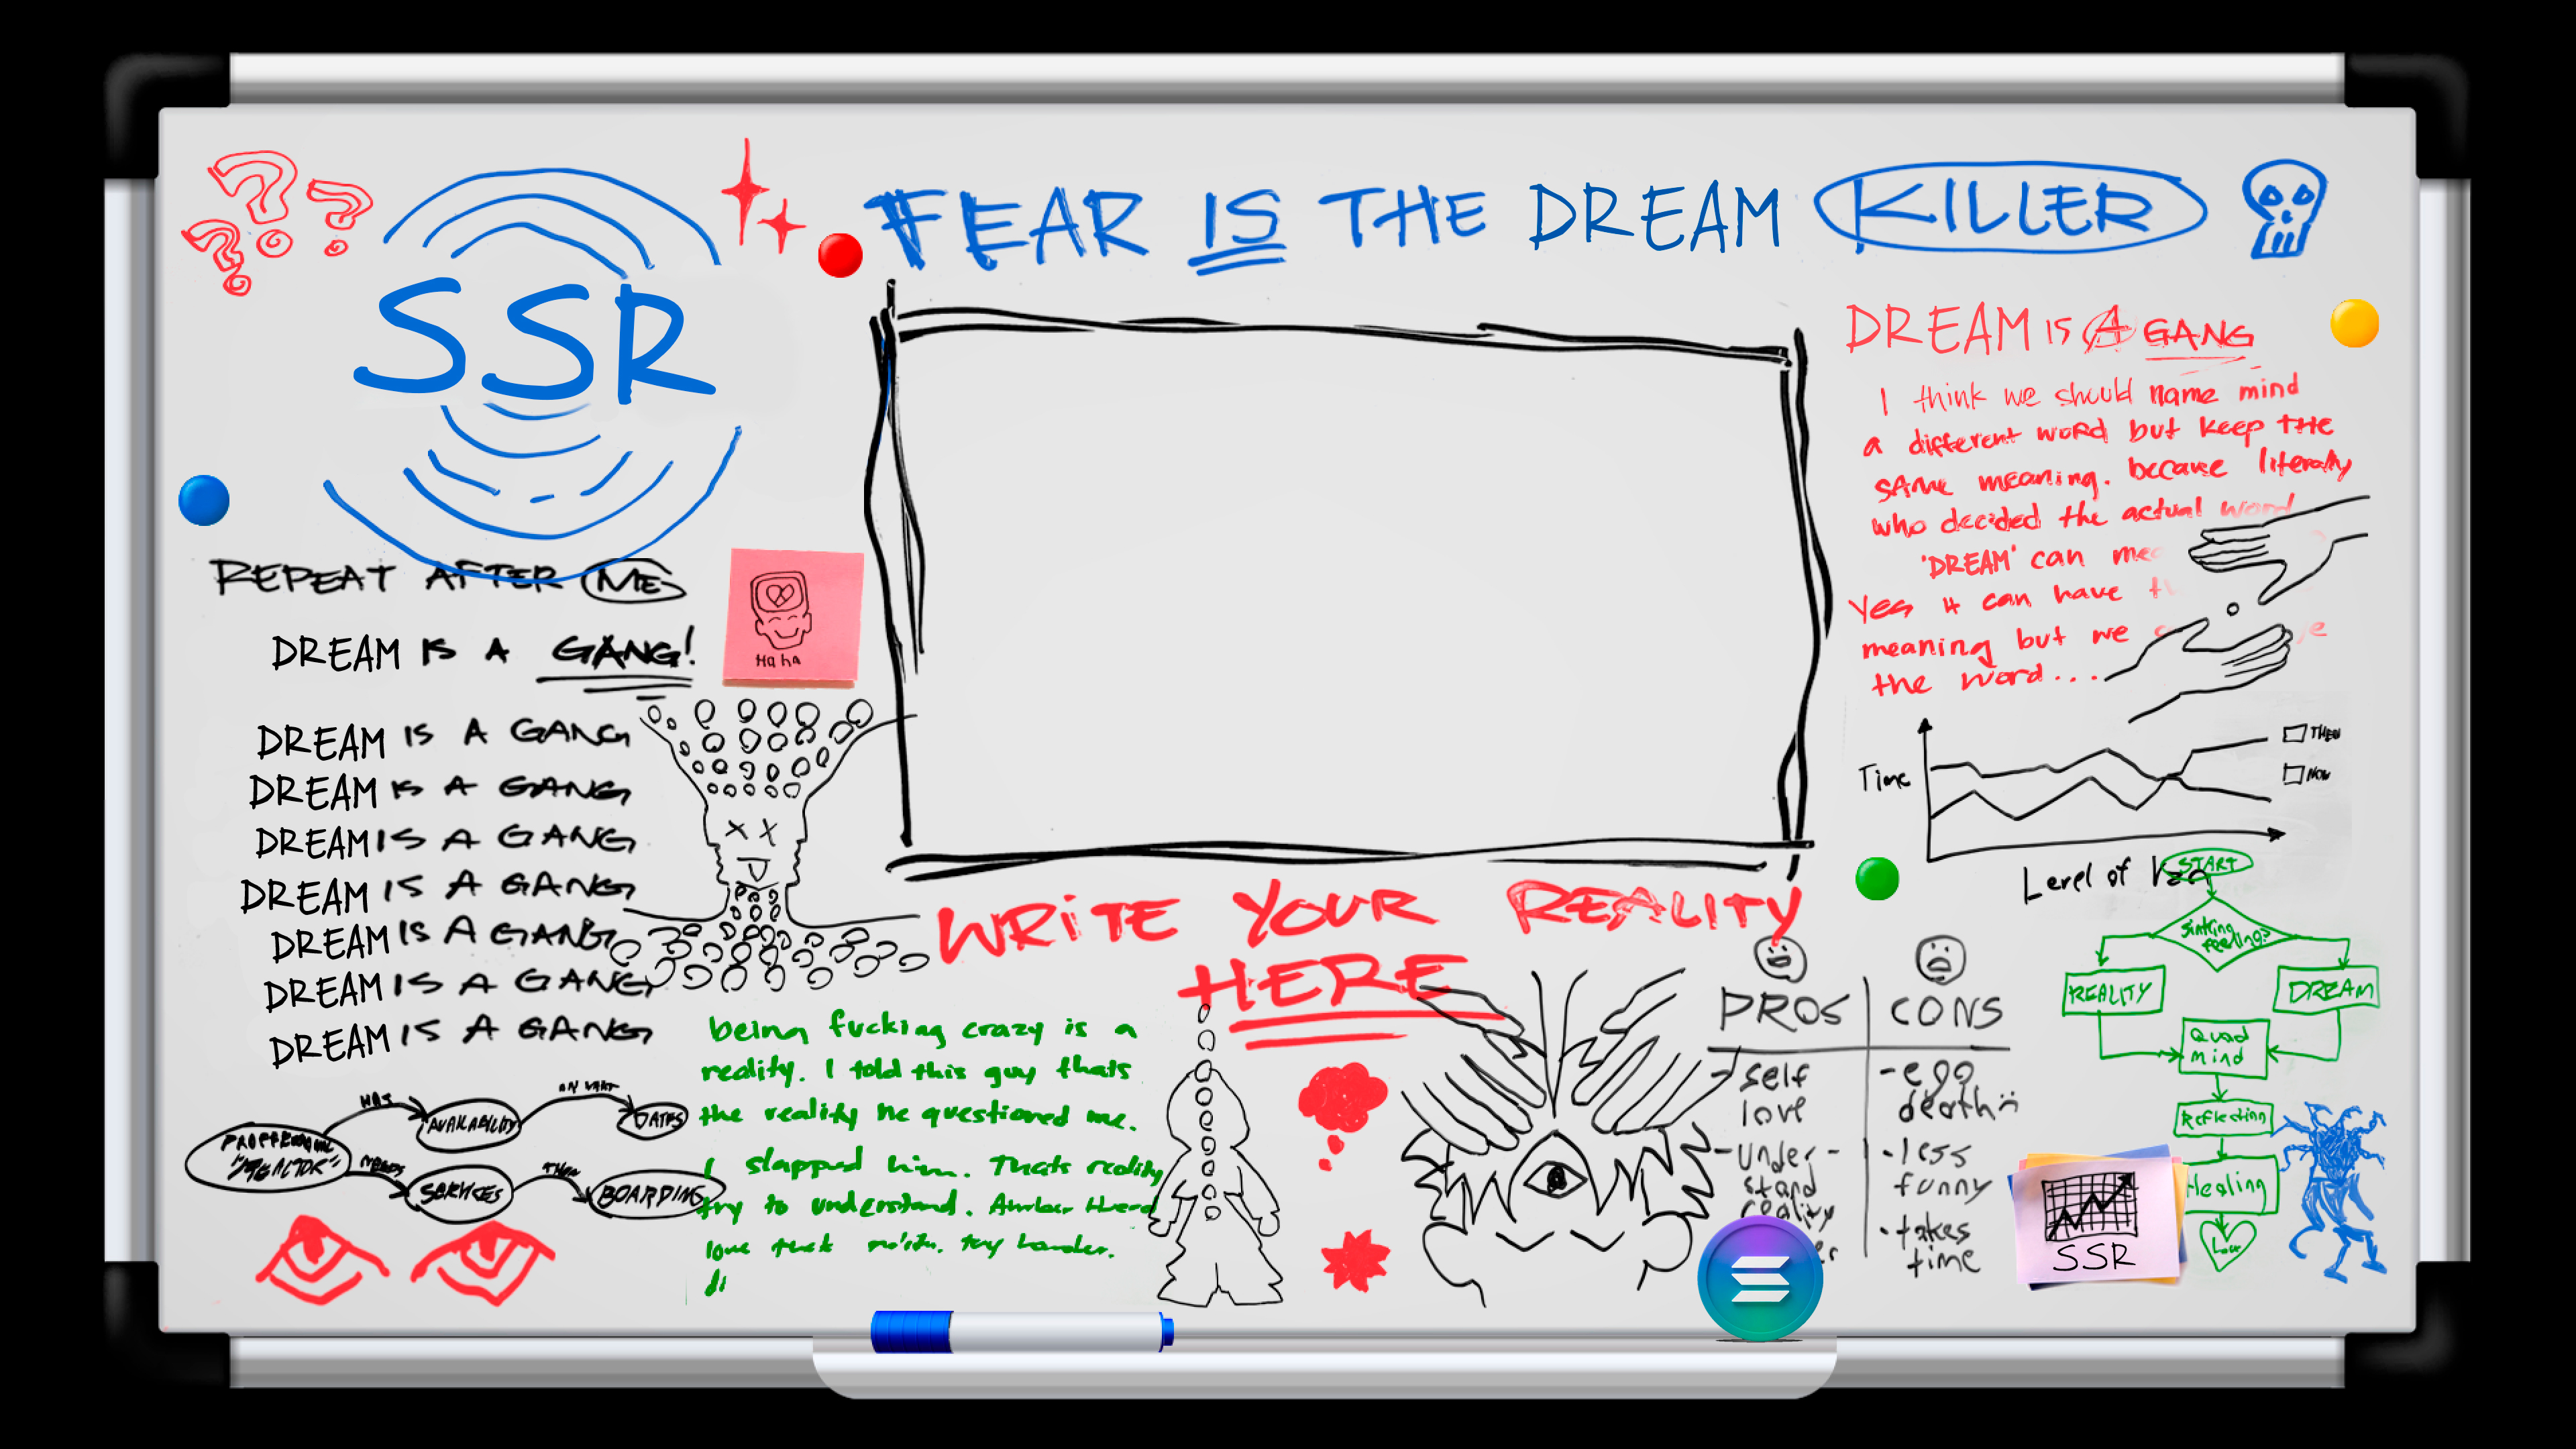 FEAR IS THE DREAM KILLER
SSR
REPEAT AFTER ME
DREAM IS A GANG!
DREAM IS A GANG
DREAM IS A GANG
DREAM IS A GANG
DREAM IS A GANG
DREAM IS A GANG
DREAM IS A GANG
DREAM IS A GANG
Ha ha
HAS
AVAILABILITY
DATES
NEEDS
SERVICES
THEN
BOARDING
being fucking crazy is a
reality. I told this guy thats
the reality he questioned me.
I slapped him. Thats reality
try to understand. Amber Heard
love that try harder.
WRITE YOUR REALITY
HERE
DREAM IS A GANG
I think we should name mind
a different word but keep THE
SAME meaning. because literally
who decided the actual word
'DREAM' can
Yes it can have
meaning but we
the word...
Time
THEN
NOW
Level of
PROS
- self
love
- under-
stand
reality
CONS
- ego
death
- less
funny
- takes
time
START
Sinking
feeling?
REALITY
DREAM
Quad
mind
Reflection
Healing
Love
SSR